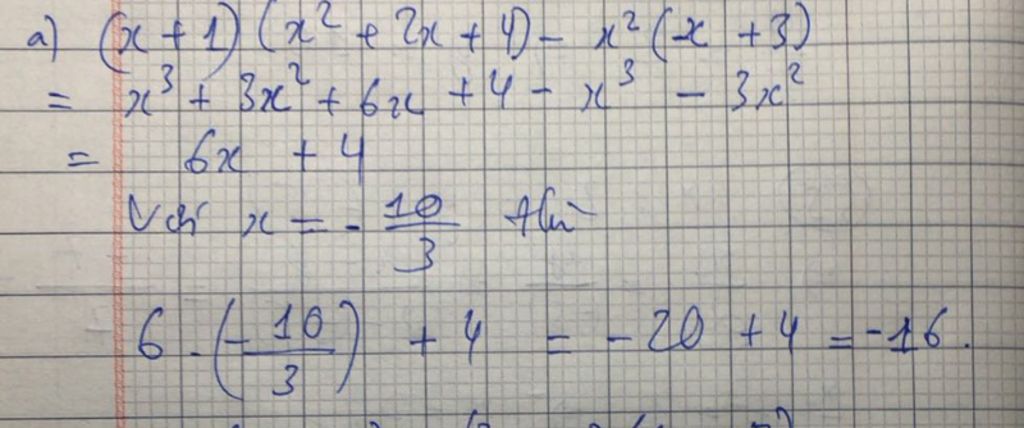 a) (x + 1) (x² + 2x + 4) - x² (x + 3)
= x³ + 3x² + 6x + 4 - x³ - 3x²
= 6x + 4
Với x = - 10/3 thì
6 . (- 10/3) + 4 = - 20 + 4 = -16.